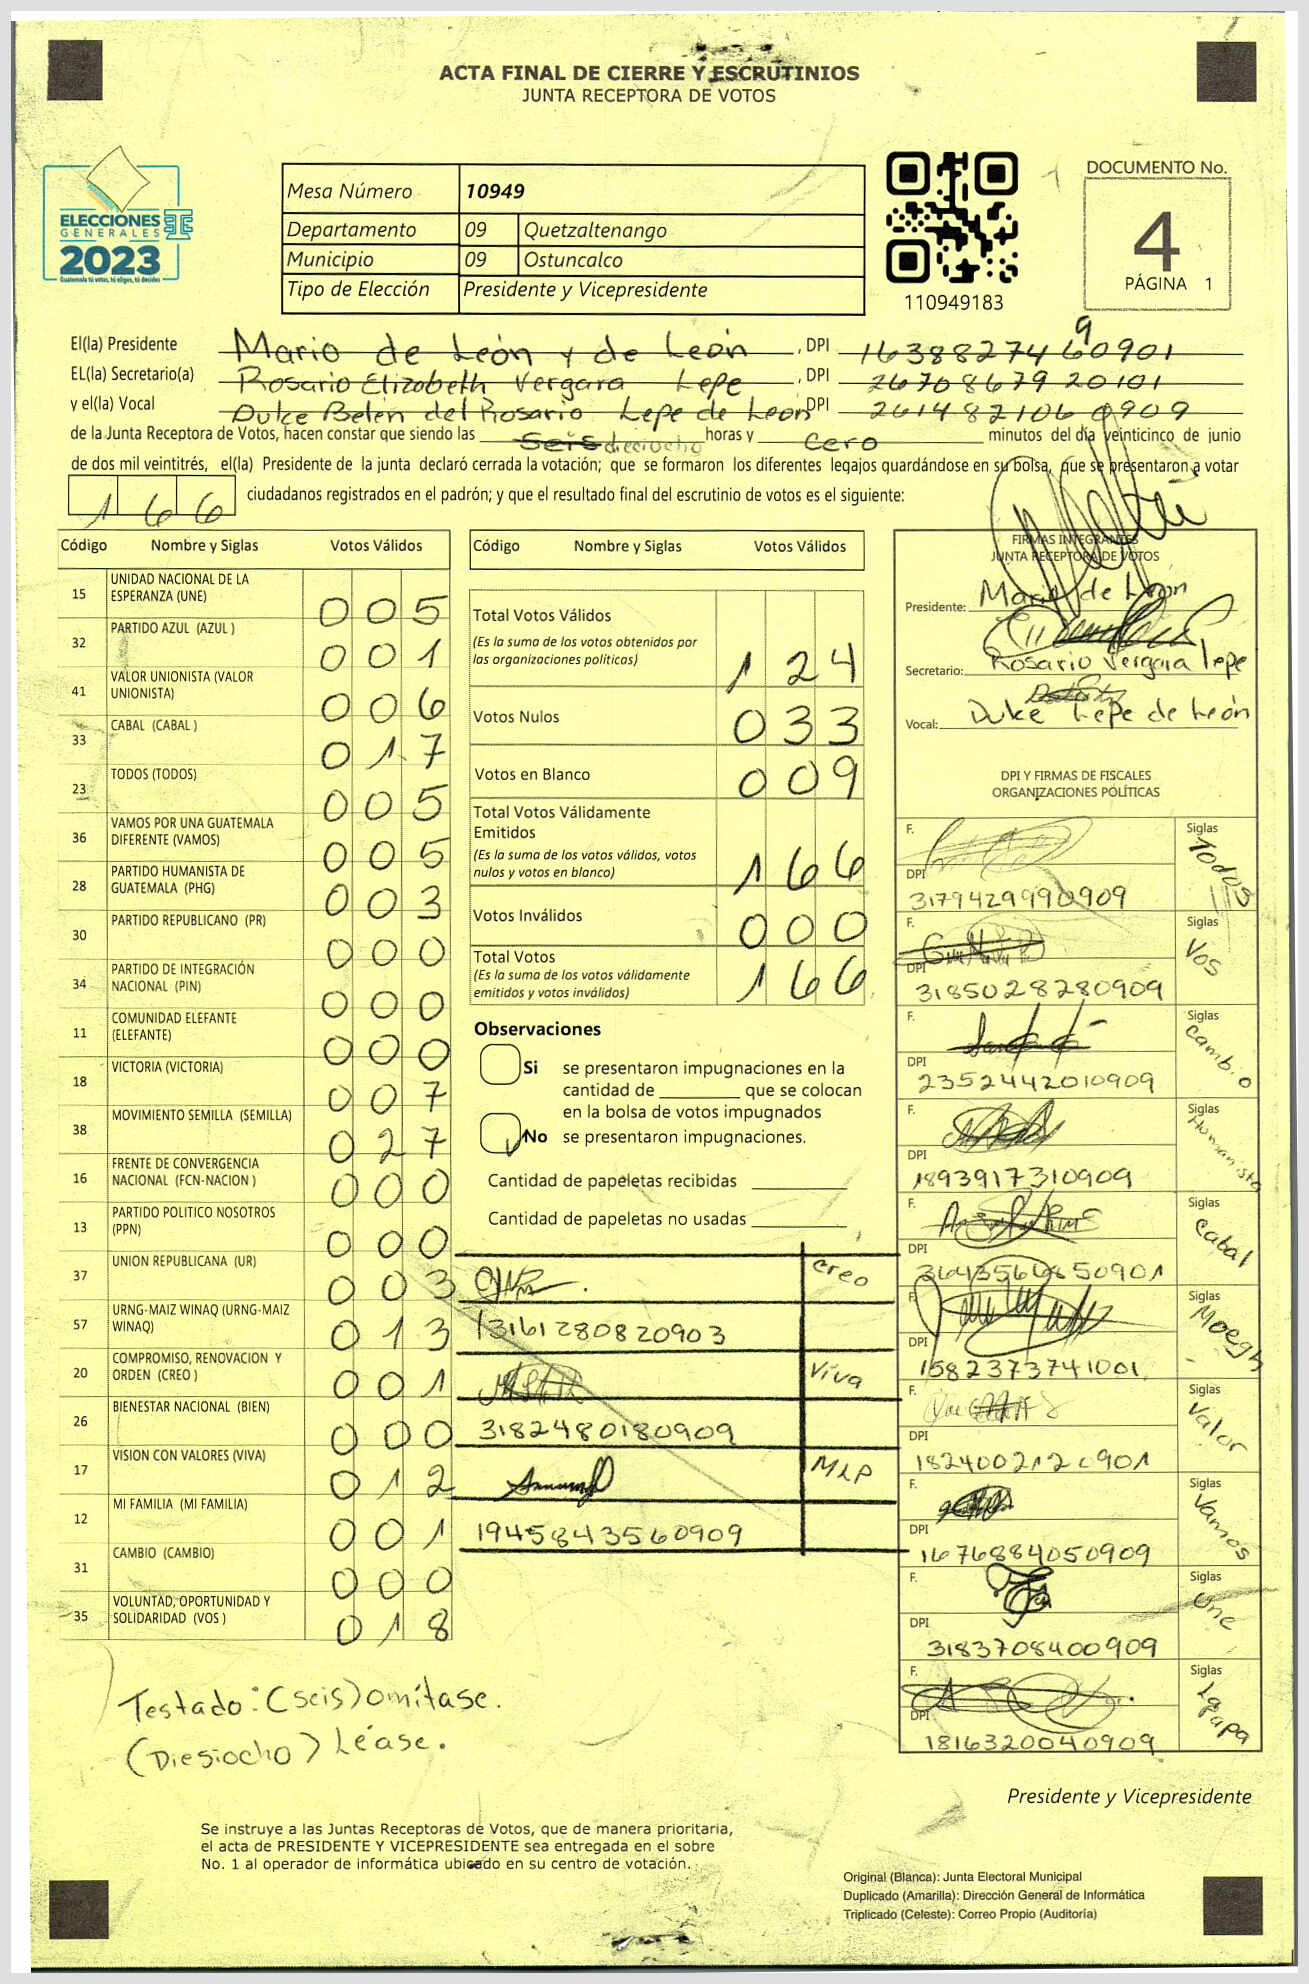 ACTA FINAL DE CIERRE Y ESCRUTINIOS
JUNTA RECEPTORA DE VOTOS
ELECCIONES
GENERALES
2023
Guatemala tú votas, tú eliges, tú decides
Mesa Número 10949
Departamento 09 Quetzaltenango
Municipio 09 Ostuncalco
Tipo de Elección Presidente y Vicepresidente
110949183
DOCUMENTO No.
4
PÁGINA 1
El(la) Presidente Mario de León y de León, DPI 16388274690901
EL(la) Secretario(a) Rosario Elizabeth Vergara Lepe, DPI 2670867920101
y el(la) Vocal Dulce Belén del Rosario Lepe de León DPI 2614821060909
de la Junta Receptora de Votos, hacen constar que siendo las Seis dieciocho horas y cero minutos del día veinticinco de junio
de dos mil veintitrés, el(la) Presidente de la junta declaró cerrada la votación; que se formaron los diferentes legajos guardándose en su bolsa, que se presentaron a votar
166 ciudadanos registrados en el padrón; y que el resultado final del escrutinio de votos es el siguiente:
Código Nombre y Siglas Votos Válidos
15 UNIDAD NACIONAL DE LA ESPERANZA (UNE) 005
32 PARTIDO AZUL (AZUL ) 001
41 VALOR UNIONISTA (VALOR UNIONISTA) 006
33 CABAL (CABAL ) 017
23 TODOS (TODOS) 005
36 VAMOS POR UNA GUATEMALA DIFERENTE (VAMOS) 005
28 PARTIDO HUMANISTA DE GUATEMALA (PHG) 003
30 PARTIDO REPUBLICANO (PR) 000
34 PARTIDO DE INTEGRACIÓN NACIONAL (PIN) 000
11 COMUNIDAD ELEFANTE (ELEFANTE) 000
18 VICTORIA (VICTORIA) 007
38 MOVIMIENTO SEMILLA (SEMILLA) 027
16 FRENTE DE CONVERGENCIA NACIONAL (FCN-NACION ) 000
13 PARTIDO POLITICO NOSOTROS (PPN) 000
37 UNION REPUBLICANA (UR) 003
57 URNG-MAIZ WINAQ (URNG-MAIZ WINAQ) 013
20 COMPROMISO, RENOVACION Y ORDEN (CREO ) 001
26 BIENESTAR NACIONAL (BIEN) 000
17 VISION CON VALORES (VIVA) 012
12 MI FAMILIA (MI FAMILIA) 001
31 CAMBIO (CAMBIO) 000
35 VOLUNTAD, OPORTUNIDAD Y SOLIDARIDAD (VOS ) 018
Código Nombre y Siglas Votos Válidos
Total Votos Válidos
(Es la suma de los votos obtenidos por
las organizaciones políticas) 124
Votos Nulos 033
Votos en Blanco 009
Total Votos Válidamente
Emitidos
(Es la suma de los votos válidos, votos
nulos y votos en blanco) 166
Votos Inválidos 000
Total Votos
(Es la suma de los votos válidamente
emitidos y votos inválidos) 166
Observaciones
Si se presentaron impugnaciones en la
cantidad de que se colocan
en la bolsa de votos impugnados
No se presentaron impugnaciones.
Cantidad de papeletas recibidas
Cantidad de papeletas no usadas
Creo
13161280820903
Viva
3182480180909
MLP
1945843560909
FIRMAS INTEGRANTES
JUNTA RECEPTORA DE VOTOS
Presidente: Mario de León
Secretario: Rosario Vergara Lepe
Vocal: Dulce Lepe de León
DPI Y FIRMAS DE FISCALES
ORGANIZACIONES POLÍTICAS
F. Siglas Todos
DPI 3179429990909
F. Siglas Vos
DPI 3185028280909
F. Siglas Cambio
DPI 2352442010909
F. Siglas Humanista
DPI 1893917310909
F. Siglas Cabal
DPI 3643560850901
F. Siglas
DPI 1582373741001
F. Siglas Valor
DPI 1824002120901
F. Siglas Vamos
DPI 1676884050909
F. Siglas Une
DPI 3183708400909
F. Siglas
DPI 1816320040909
Testado: (seis) omítase.
(Diesiocho) Léase.
Presidente y Vicepresidente
Se instruye a las Juntas Receptoras de Votos, que de manera prioritaria,
el acta de PRESIDENTE Y VICEPRESIDENTE sea entregada en el sobre
No. 1 al operador de informática ubicado en su centro de votación.
Original (Blanca): Junta Electoral Municipal
Duplicado (Amarilla): Dirección General de Informática
Triplicado (Celeste): Correo Propio (Auditoría)